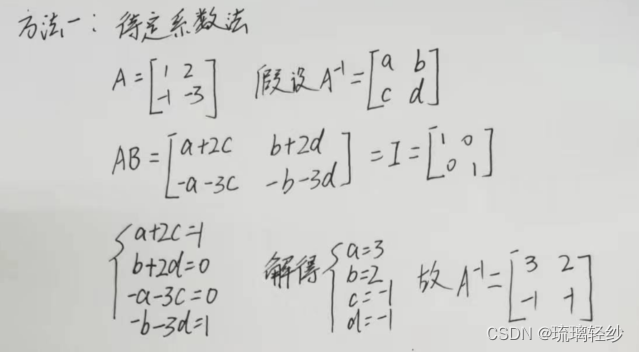 方法一：待定系数法
A = [1 2; -1 -3] 假设 A⁻¹ = [a b; c d]
AB = [a+2c b+2d; -a-3c -b-3d] = I = [1 0; 0 1]
{a+2c=1 b+2d=0 -a-3c=0 -b-3d=1 解得 {a=3 b=2 c=-1 d=-1 故 A⁻¹ = [3 2; -1 -1]
CSDN @琉璃轻纱